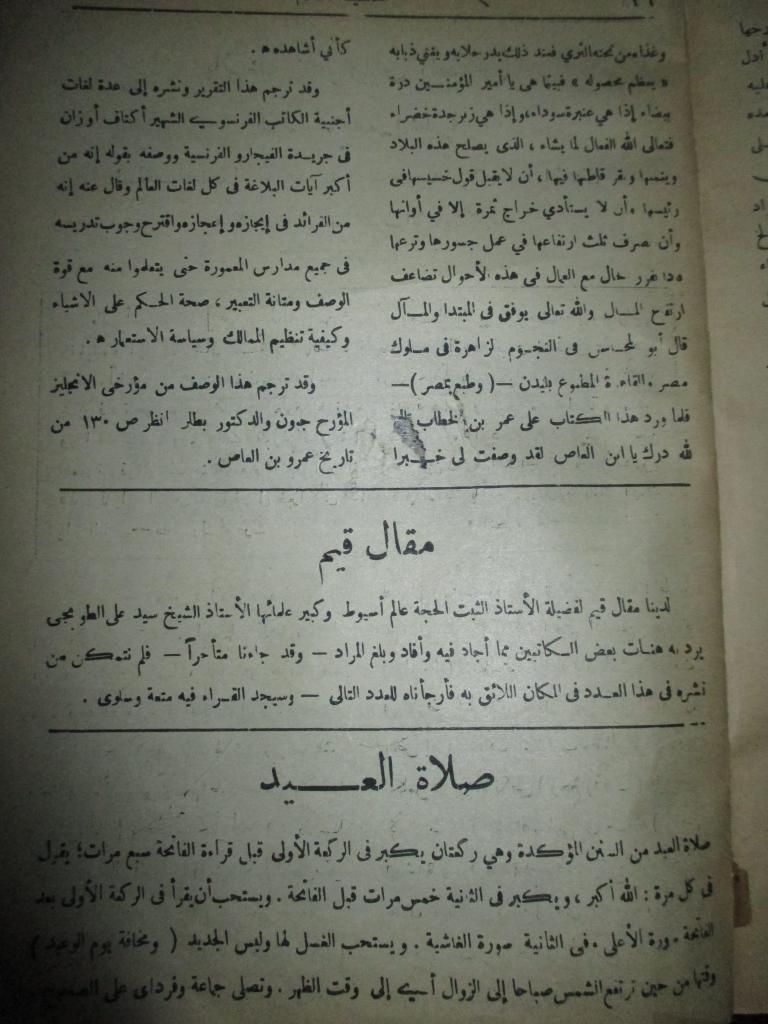 وغذاء من تحته الثرى فعند ذلك يدر حلابه ويغني ذبابه
« يعظم محصوله » فبينما هى يا أمير المؤمنــين درة
بيضاء إذا هي عنبرة سوداء، وإذا هي زبرجدة خضراء
فتعالى الله الفعال لما يشاء ، الذى يصلح هذه البلاد
وينميها ويقر قاطنها فيها ، أن لا يقبل قول خسيسها فى
رئيسها وأن لا يستأدي خراج ثمرة إلا في أوانها
وأن يصرف ثلث ارتفاعها في عمل جسورها وترعها
حال مع العمال فى هذه الأحوال تضاعف
ارتفاع المـال والله تعالى يوفق فى المبتدا والمـآل
قال أبو المحاسن فى النجوم الزاهرة فى ملوك
مصر والقاهرة المطبوع بليدن —( وطبع بمصر )—
فلما ورد هذا الكتاب على عمر بن الخطاب
لله درك يا ابن العاص لقد وصفت لى خــبرا
كأنى أشاهده ه .
وقد ترجم هذا التقرير ونشره إلى عدة لغات
أجنبية الكاتب الفرنسوي الشهير أكتاف أوزان
فى جريدة الفيجارو الفرنسية ووصفه بقوله إنه من
أكبر آيات البلاغة فى كل لغات العالم وقال عنه إنه
من الفرائد فى إيجازه وإعجازه واقترح وجوب تدريسه
فى جميع مدارس المعمورة حتى يتعلموا منه مع قوة
الوصف ومتانة التعبير ، صحة الحـكم على الاشياء
وكيفية تنظيم الممالك وسياسة الاستعمار ه .
وقد ترجم هذا الوصف من مؤرخى الانجليز
المؤرح جون والدكتور بطلر انظر ص ١٣٠ من
تاريخ عمرو بن العاص .
مقال قيم
لدينا مقال قيم لفضيلة الأستاذ الثبت الحجة عالم أسيوط وكبير علمائها الأستاذ الشيخ سيد على الطوبجى
يرد به هنات بعض الـكاتبين مما أجاد فيه وأفاد وبلغ المراد — وقد جاءنا متأخراً — فلم نتمكن من
نشره فى هذا العـدد فى المكان اللائق به فأرجأناه للعدد التالى — وسيجد القـراء فيه متعة وسلوى .
صلاة العـــيد
صلاة العيد من السنن المؤكدة وهي ركعتان يكبر فى الركعة الأولى قبل قراءة الفاتحة سبع مرات؛ يقول
فى كل مرة : الله أكبر ، ويكبر فى الثانية خمس مرات قبل الفاتحة . ويستحب أن يقرأ فى الركعة الأولى بعد
الفاتحة سورة الأعلى . فى الثانية سورة الغاشية . ويستحب الغسل لها ولبس الجديد ( ومخافة يوم الوعيد )
وقتها من حين ترتفع الشمس صباحا إلى الزوال أي إلى وقت الظهر . وتصلى جماعة وفرادى على